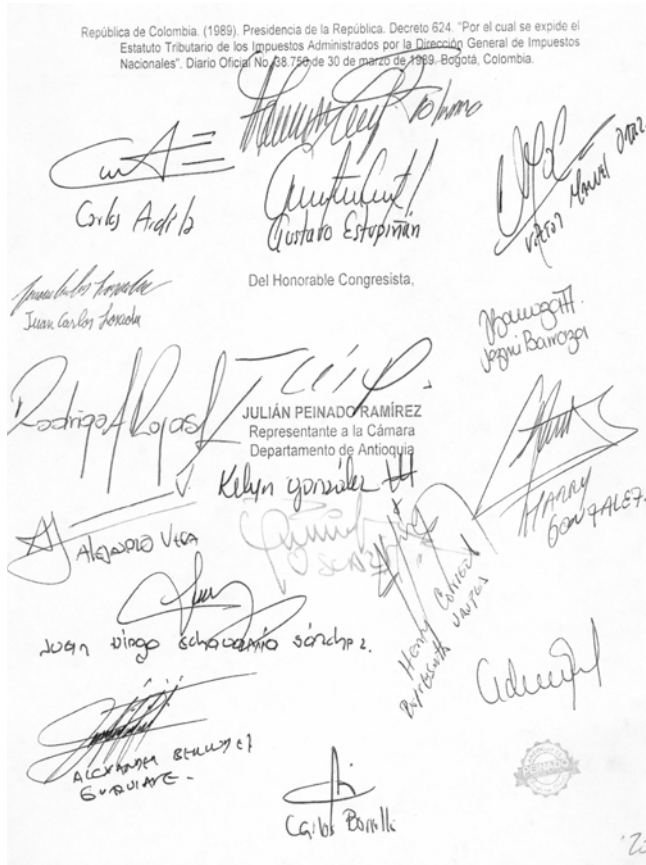 República de Colombia. (1989). Presidencia de la República. Decreto 624. "Por el cual se expide el
Estatuto Tributario de los Impuestos Administrados por la Dirección General de Impuestos
Nacionales". Diario Oficial No. 38.756 de 30 de marzo de 1989. Bogotá, Colombia.
Carlos Ardila
Gustavo Estupiñán
Victor Manuel Ortiz
Del Honorable Congresista,
Juan Carlos Losada
Jezmi Barraza
Rodrigo Rojas
JULIÁN PEINADO RAMÍREZ
Representante a la Cámara
Departamento de Antioquia
Kelyn González
HARRY
GONZALEZ.
ALEJANDRO VEGA
OSCAR
Henry Correal
Juan Diego Echavarría Sánchez.
ALEXANDER BERMUDEZ
GUAVIARE -
Carlos Bonilla
PEINADO